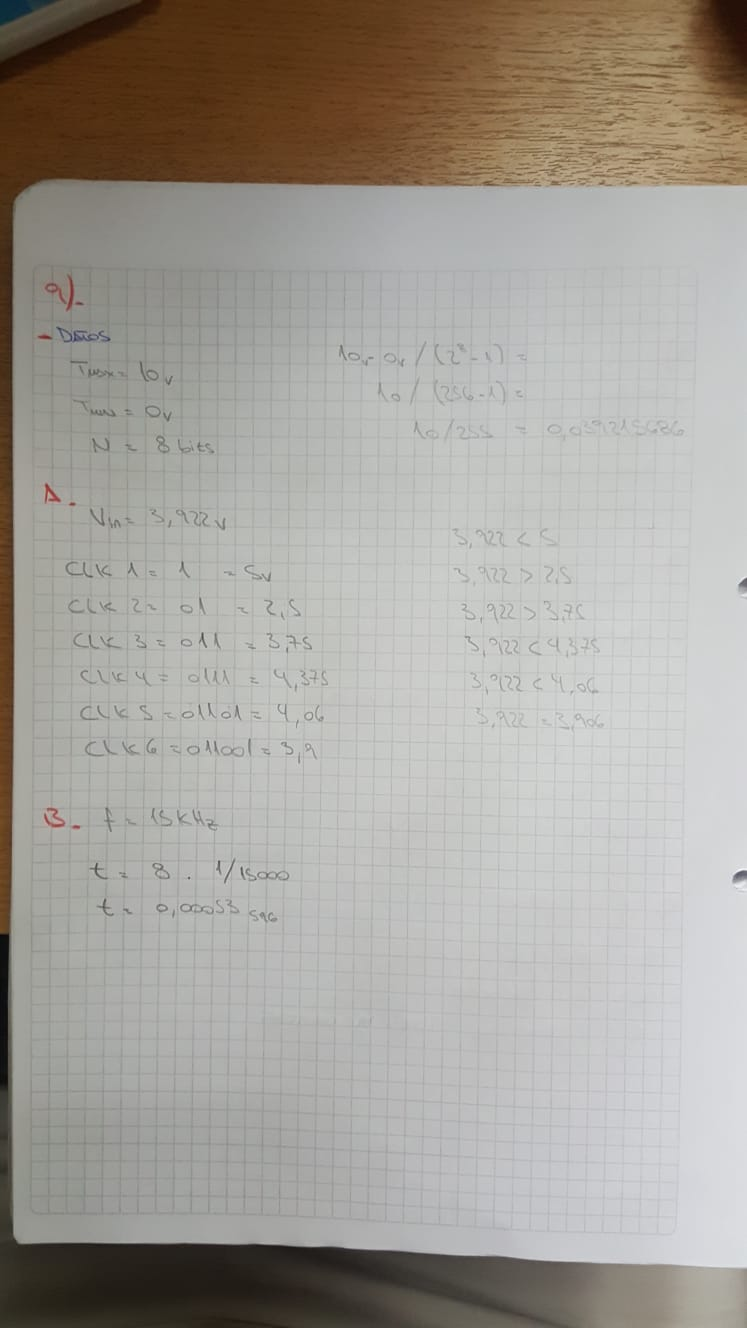 9).
- DATOS
Tmax = 10v
Tmin = 0v
N = 8 bits
10v - 0v / (2⁸ - 1) =
10 / (256 - 1) =
10/255 = 0,039215686
A.
Vin = 3,922v
CLK 1 = 1 = 5v
CLK 2 = 01 = 2,5
CLK 3 = 011 = 3,75
CLK 4 = 0111 = 4,375
CLK 5 = 01101 = 4,06
CLK 6 = 011001 = 3,9
3,922 < 5
3,922 > 2,5
3,922 > 3,75
3,922 < 4,375
3,922 < 4,06
3,922 = 3,906
B. f = 15KHz
t = 8 . 1/15000
t = 0,00053 seg